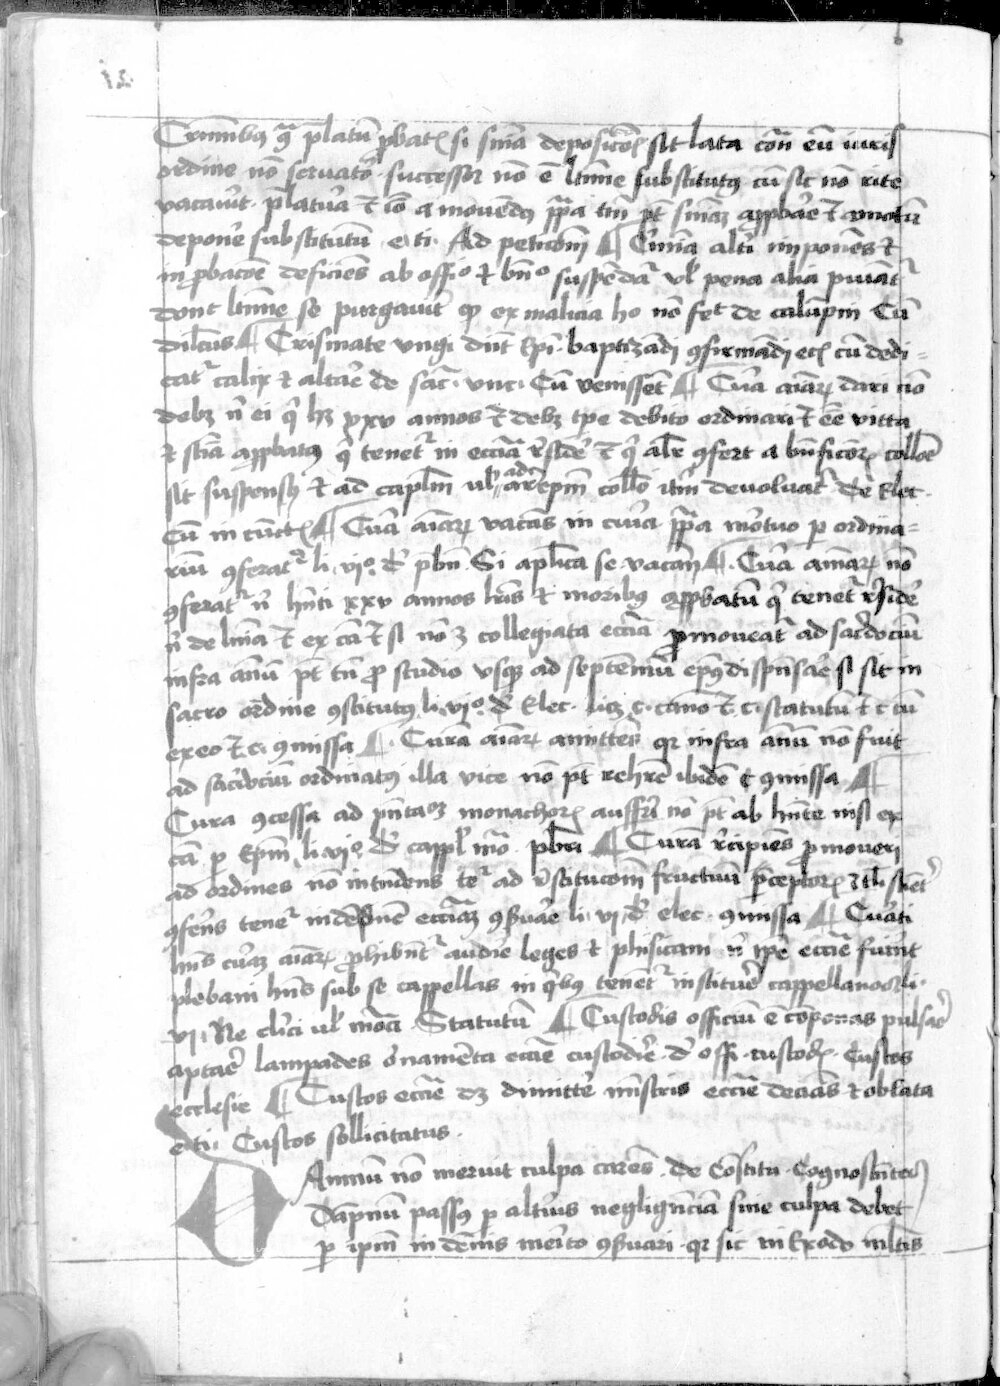 Crimibus qua prelatu pbat si snia deposicois sit lata con eu iuris
ordine no servato successor no e ltime substitutus cu sic no rite
vacavit platura
depone substitutu e ti Ad peticom ¶ Crimia alti imponens et
in pbacoe deficiens ab offio et bnfio suspedat ul pena alia puniat
donec ltime se purgavit qd ex malicia hoc no fec de calupni Cu
dilcus ¶ Crismate ungi dnt Epi baptizadi cfirmadi etc cu dedi=
catr calix et altare de sac unc Cu venisset ¶ Cura aiarum dari no
debz n ei q hz xxv annos et debz tpe debito ordinari et ee vitta
et scia approbatus q tenetr in ecca reside et q alr cfert a bnficior collone
sit suspensus et ad caplm ul ad arcepm collo itm devolvatr de Elec
Cu in cuct ¶ Cura aiarum vacans in curia papa mortuo p ordina=
riu cferatr li vi° de pbn Si aplica se vacan ¶ Cura aiarum no
cferatr n hnti xxv annos lris et moribus approbatu q tenetr reside
n de lnia et ex ca et si no est collegiata ecca promoveatr ad sacdociu
infra annu pt tn pro studio usque ad septenniu epus dispnsare si sit in
sacro ordine cstitutus li vi° de Elec licz c cano et c statutu et c cu
ex eo et c cmissa ¶ Cura aiarum amittens qr infra annu no fuit
ad sacdociu ordinatus illa vice no pt rehre ibide c cmissa ¶
Cura ccessa ad pntacoz monachor auffri no pt ab hnte nisi ex
ca p Epm li vi° de cappl mo pbri ¶ Cura recipiens promoveri
ad ordines no intendens tetr ad restitucom fructuu preceptor
cferens tenetr indempne ecciaz cservare li vi de elec cmissa ¶ Curati
hntes curaz aiarum prohibntr audire leges et phisicam n ipe eccie fuint
plebani hntes sub se cappellas in qbus tenentr instituere cappellanos li
vi Ne clici ul moci Statutu ¶ Custodis officiu e companas pulsare
aptare lampades ornameta eccie custodire de offi custod Custos
ecclesie ¶ Custos eccie dz dimitte mistris eccie decias et oblata
e ti Custos sollicitatus
DAmnu no meruit culpa carens de Costitu Cognoscentes
Dapnu passus p altius negligencia sine culpa debet
p ipm indemnis merito cservari qr sic in Exodo mltis